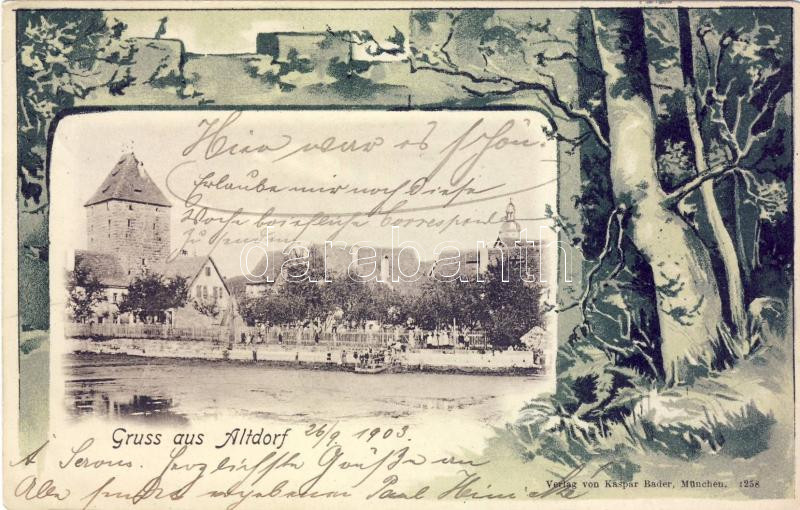 Hier war es schön.
Erlaube mir noch diese
Woche briefliche Correspond.
zu senden
darabanth
Gruss aus Altdorf 26/9 1903.
Herzlichste Grüße an
Alle sendet ergebenen Paul
Verlag von Kaspar Bader, München. 1258